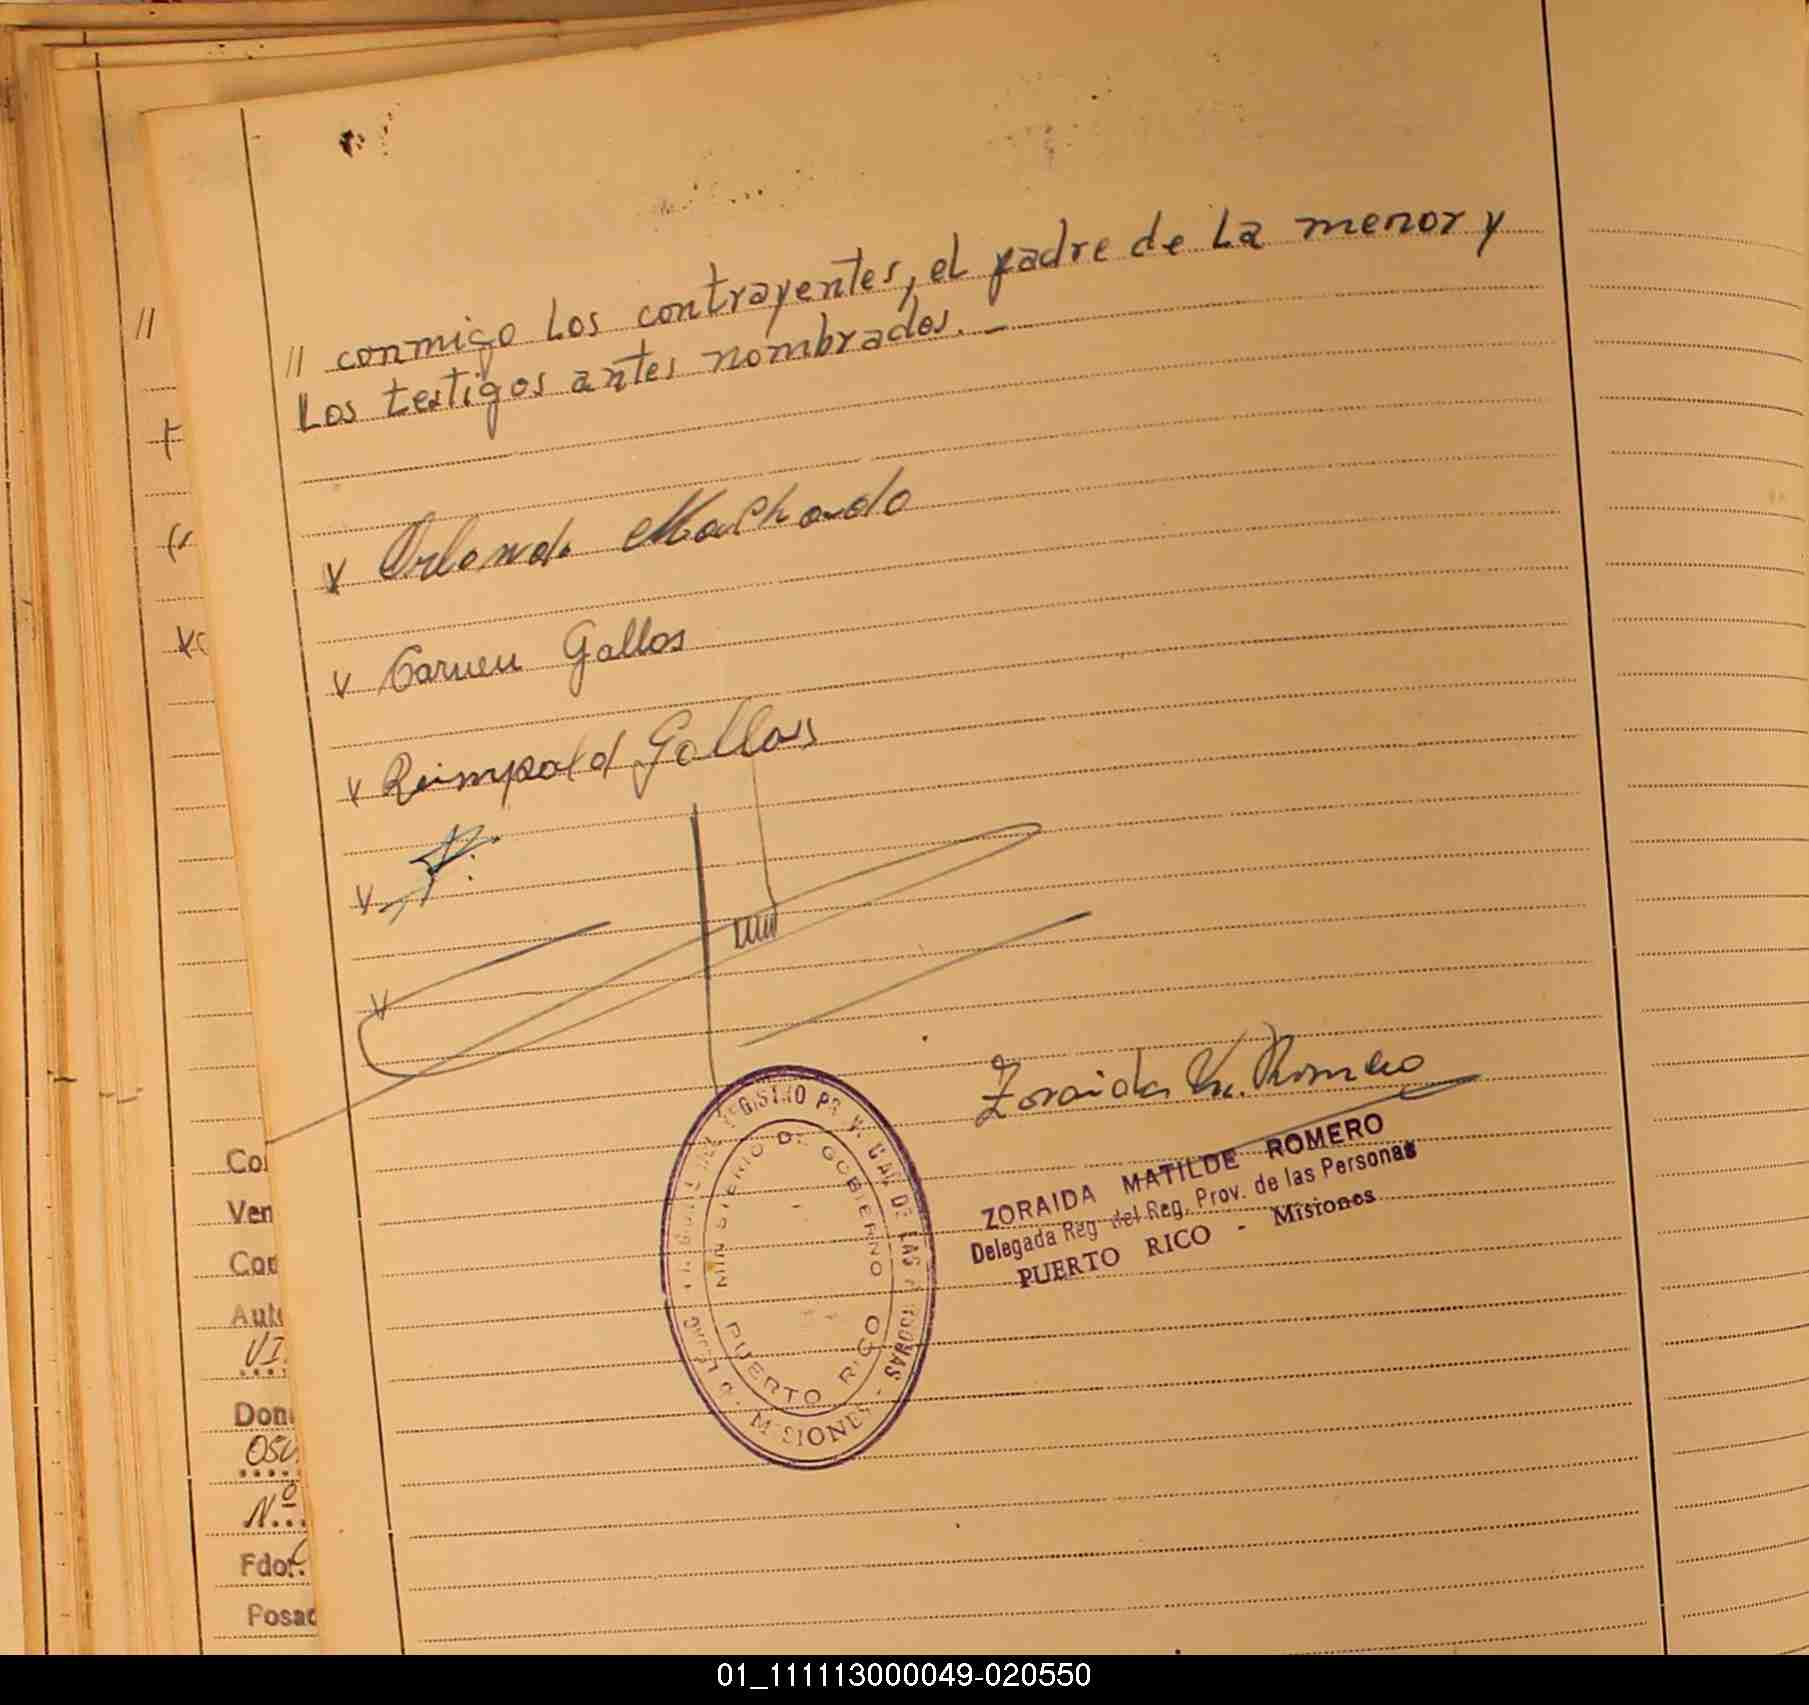 // conmigo Los contrayentes, el padre de La menor y
Los testigos antes nombrados. -
v Orlando Machado
v Carmen Gallos
v Reimpold Gallas
v
v
Zoraida M. Romero
ZORAIDA MATILDE ROMERO
Delegada Reg. del Reg. Prov. de las Personas
PUERTO RICO - Misiones
REGISTRO PROV. DE LAS PERSONAS - MISIONES
MINISTERIO DE GOBIERNO
PUERTO RICO
//
Co
Ven
Con
Auto
VI.
Don
OSC
Nº...
Fdo:.
Posad
01_111113000049-020550